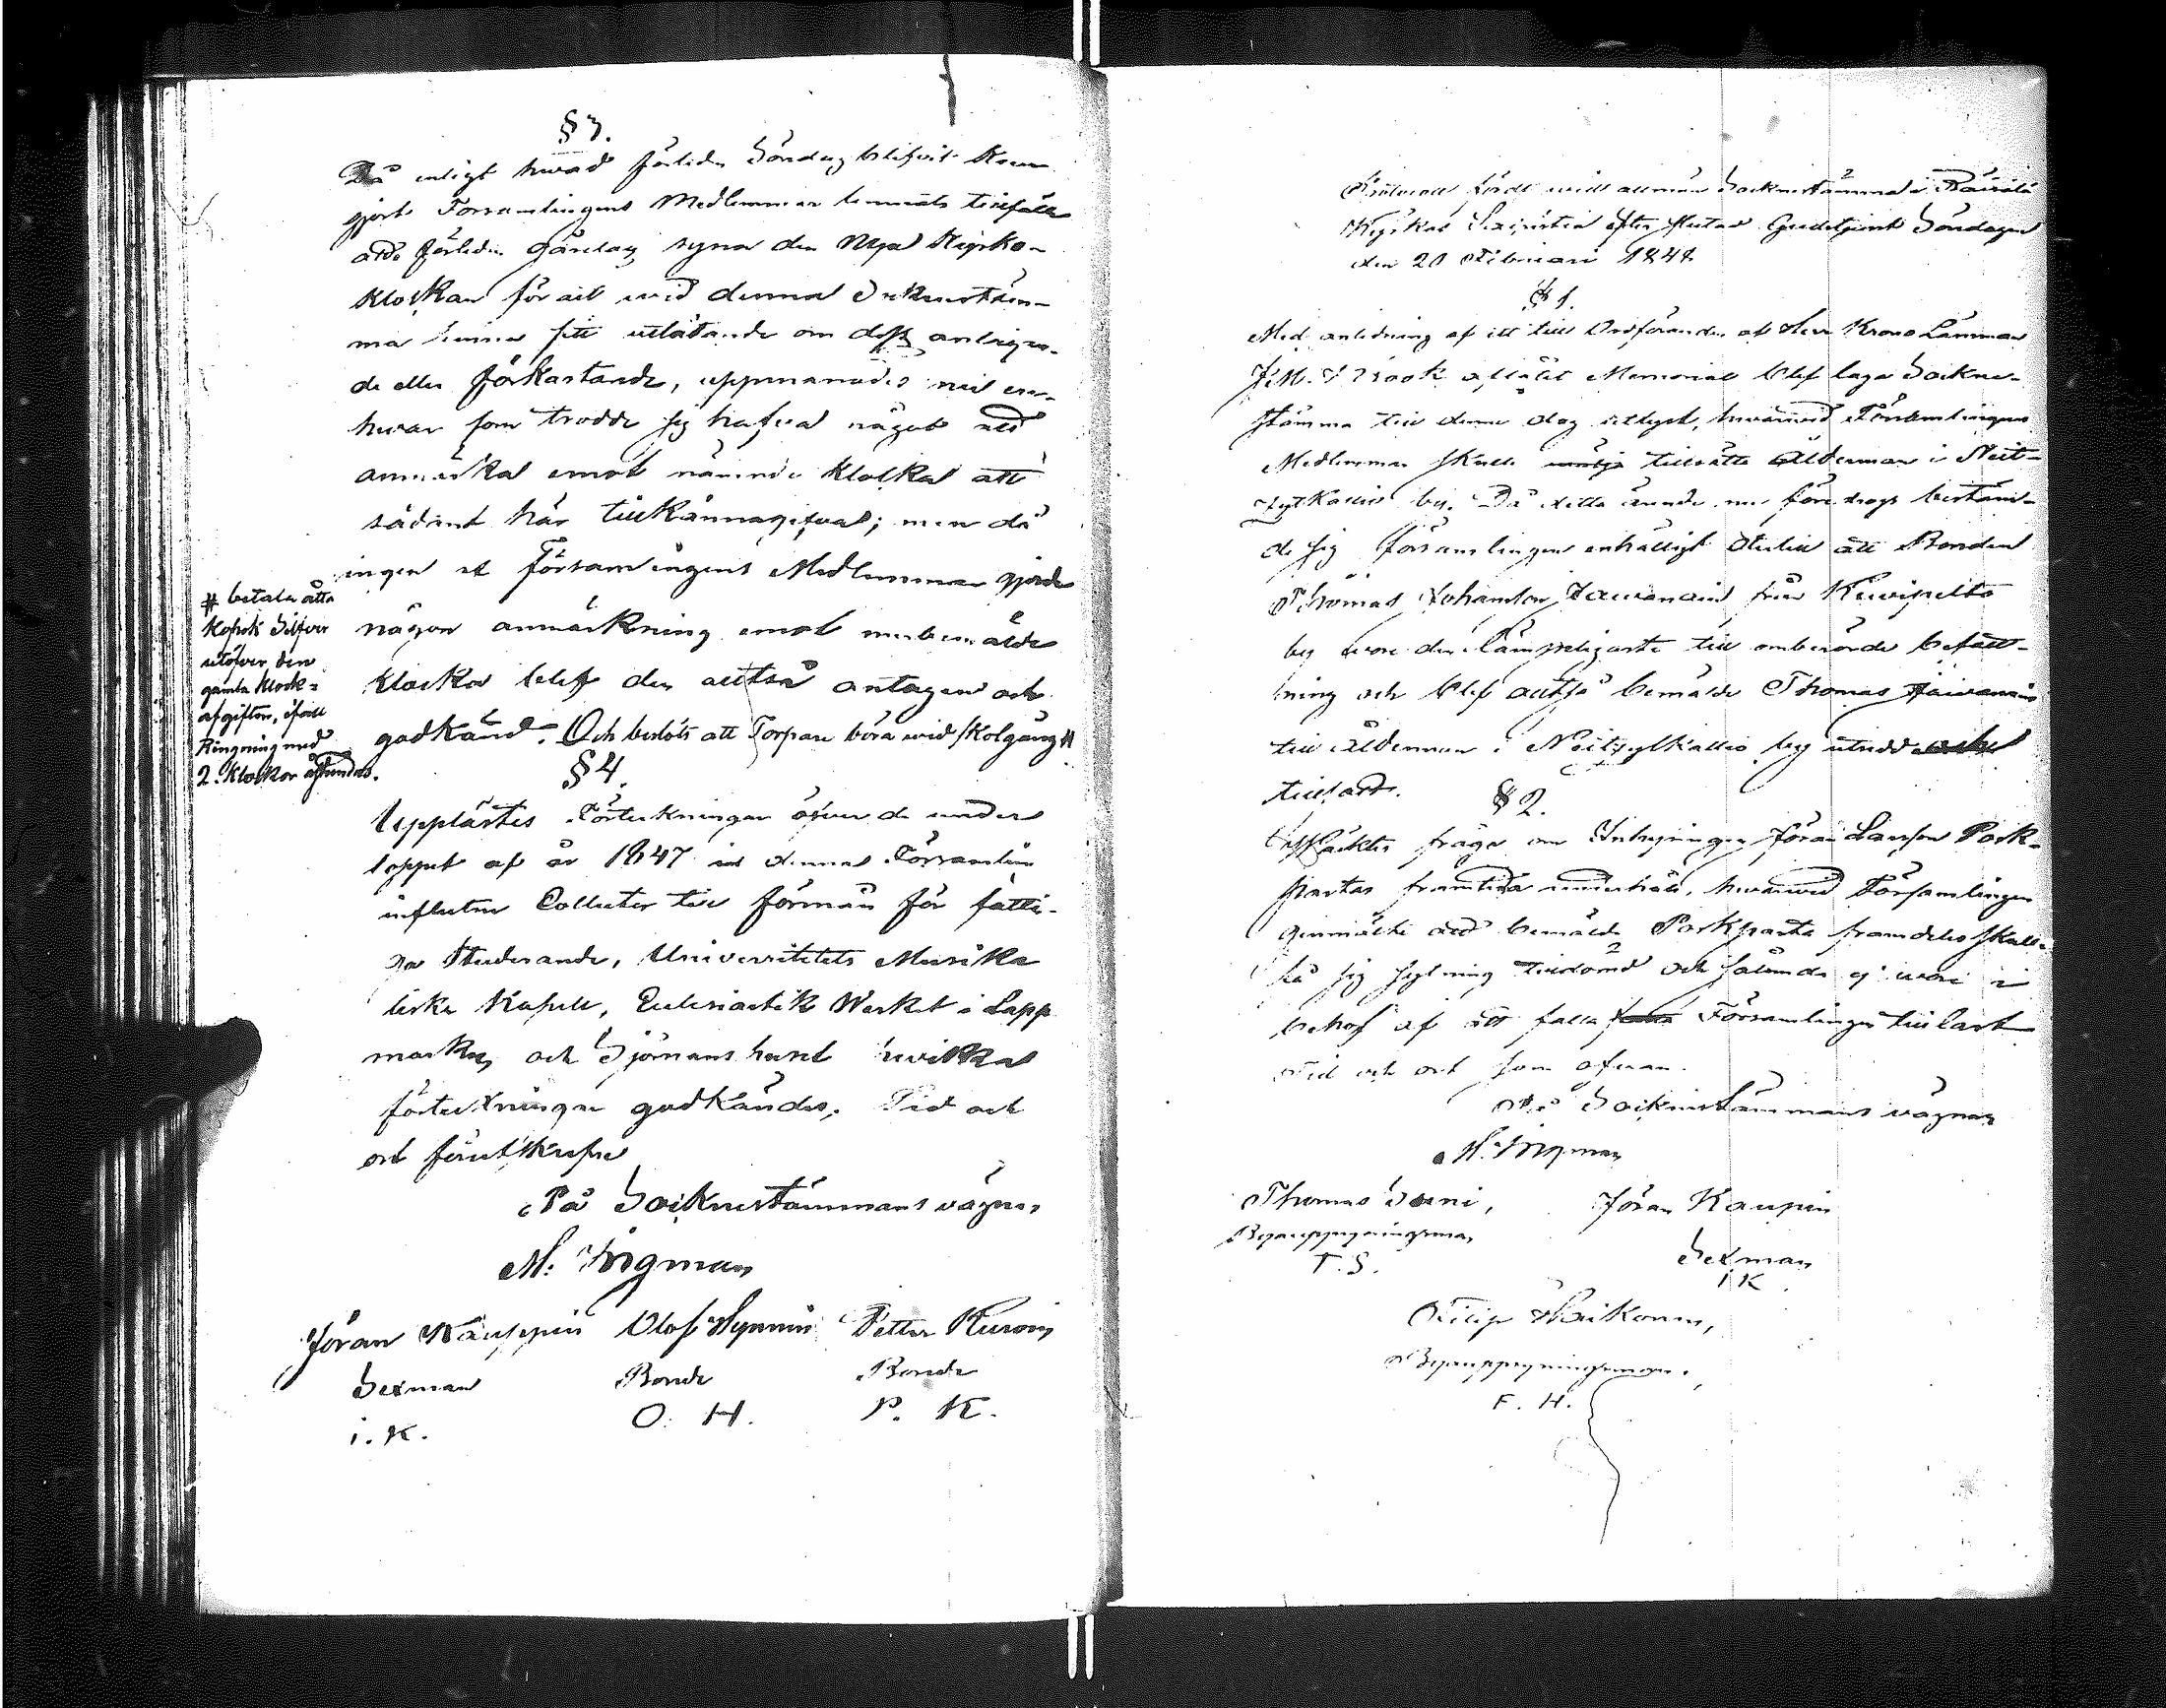 § 3.
Då enligt hwad förliden Söndag blifvit kun-
gjort Församlingens Medlemmar lemnats tillfälle
att förliden gårdag syna den Nya Kyrko-
klockan för att wid denna Sockenstäm-
ma lemna sitt utlåtande om dess antagan-
de eller förkastande, uppmanades nu en-
hwar som trodde sig hafwa något att
anmärka emot nämnde klocka att
sådant här tillkännagifwa; men då
ingen af Församlingens Medlemmar gjorde
någon anmärkning emot merbemälde
klocka blef den alltså antagen och
godkänd. Och beslöts att Torpare böra wid Skolgång #
# betala åtta
Kopek Silfver
utöfver den
gamla klock-
afgiften, ifall
Ringning med
2. klockor åstundas.
§ 4.
Upplästes Förteckningar öfver de under
loppet af år 1847 i denna Församling
influtne Collecter till förmån för fatti-
ga Studerande, Universitetets Musika-
liska Kapell, Ecclesiastik Werket i Lapp
marken och Sjömans huset hwilka
förteckningar godkändes. Tid och
ort förutskrefne
På Sockenstämmans vägnar
M: Wigman
Jöran Kauppin Olof Hynnin Petter Kuroin
Sexman Bonde Bonde
i. K. O. H. P. K.
Protocoll fördt widt allmän Sockenstämma i Räisälä
Kyrkas Sacristia efter slutad Gudstjenst Söndagen
den 20 Februari 1848
§ 1.
Med anledning af ett till Ordföranden af Herr Krono Länsman
J. M. aflåtit Memorial blef laga Sockne-
stämma till denne dag utlyst, hwarwid Församlingens
Medlemmar skulle tillsätta Ålderman i Neit-
zytkallio by. Då detta ärende nu företrogs bestäm-
de sig Församlingen enhälligt dertill att Bonden
Thomas Johansson från Kiwipelto
by wore den lämpeligaste till omberörde befatt-
ning och blef alltså bemälde Thomas
till ålderman i Neitzytkallio by utsedd
tillsatt.
§ 2.
Upplästes fråga om Inhysingen Jöran Larsson Pork-
partas framtida underhåll, hwarwid Församlingen
genmälte att bemälde Porkparta framdeles skulle
få sig sytning tilldömd och således ej wara i
behof af att falla Församlingen till last
Tid och ort som ofwan.
På Sockenstämmans vägnar
M. Wigman
Thomas Suni, Jöran Kaupin
Byauppsyningsman, Sexman
T. S. i K
Filip Haikonen,
Byauppsyningsman.
F. H.